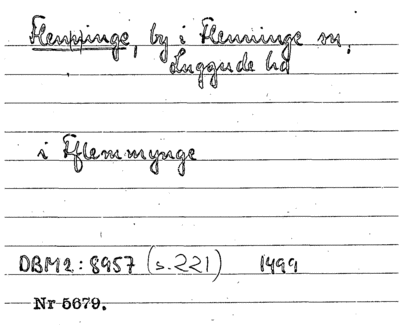 Flenninge, by i Flenninge sn,
Luggude hd
i Fflemmynge
DBM2: 8957 (s. 221) 1499
Nr 5679.